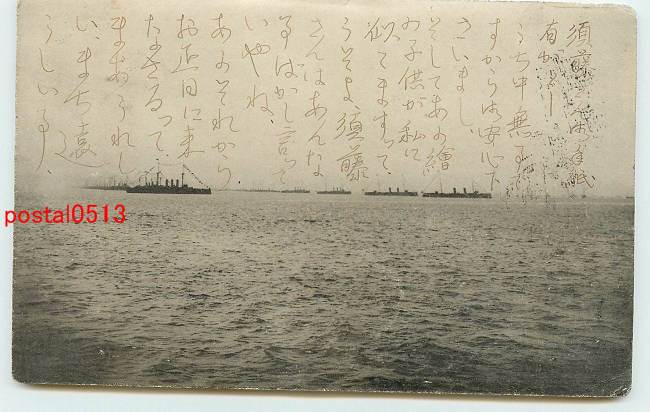 須藤さん御手紙
有がとー
うち中無事
すから御安心下
さいまし、
そしてあの繪
の子供が私に
似てますつて、
うそよ、須藤
さんはあんな
事ばかし言つて
いやね、
あのそれから
お正月に来
たさるつて、
まあうれし
い、まち遠
しい事、
postal0513